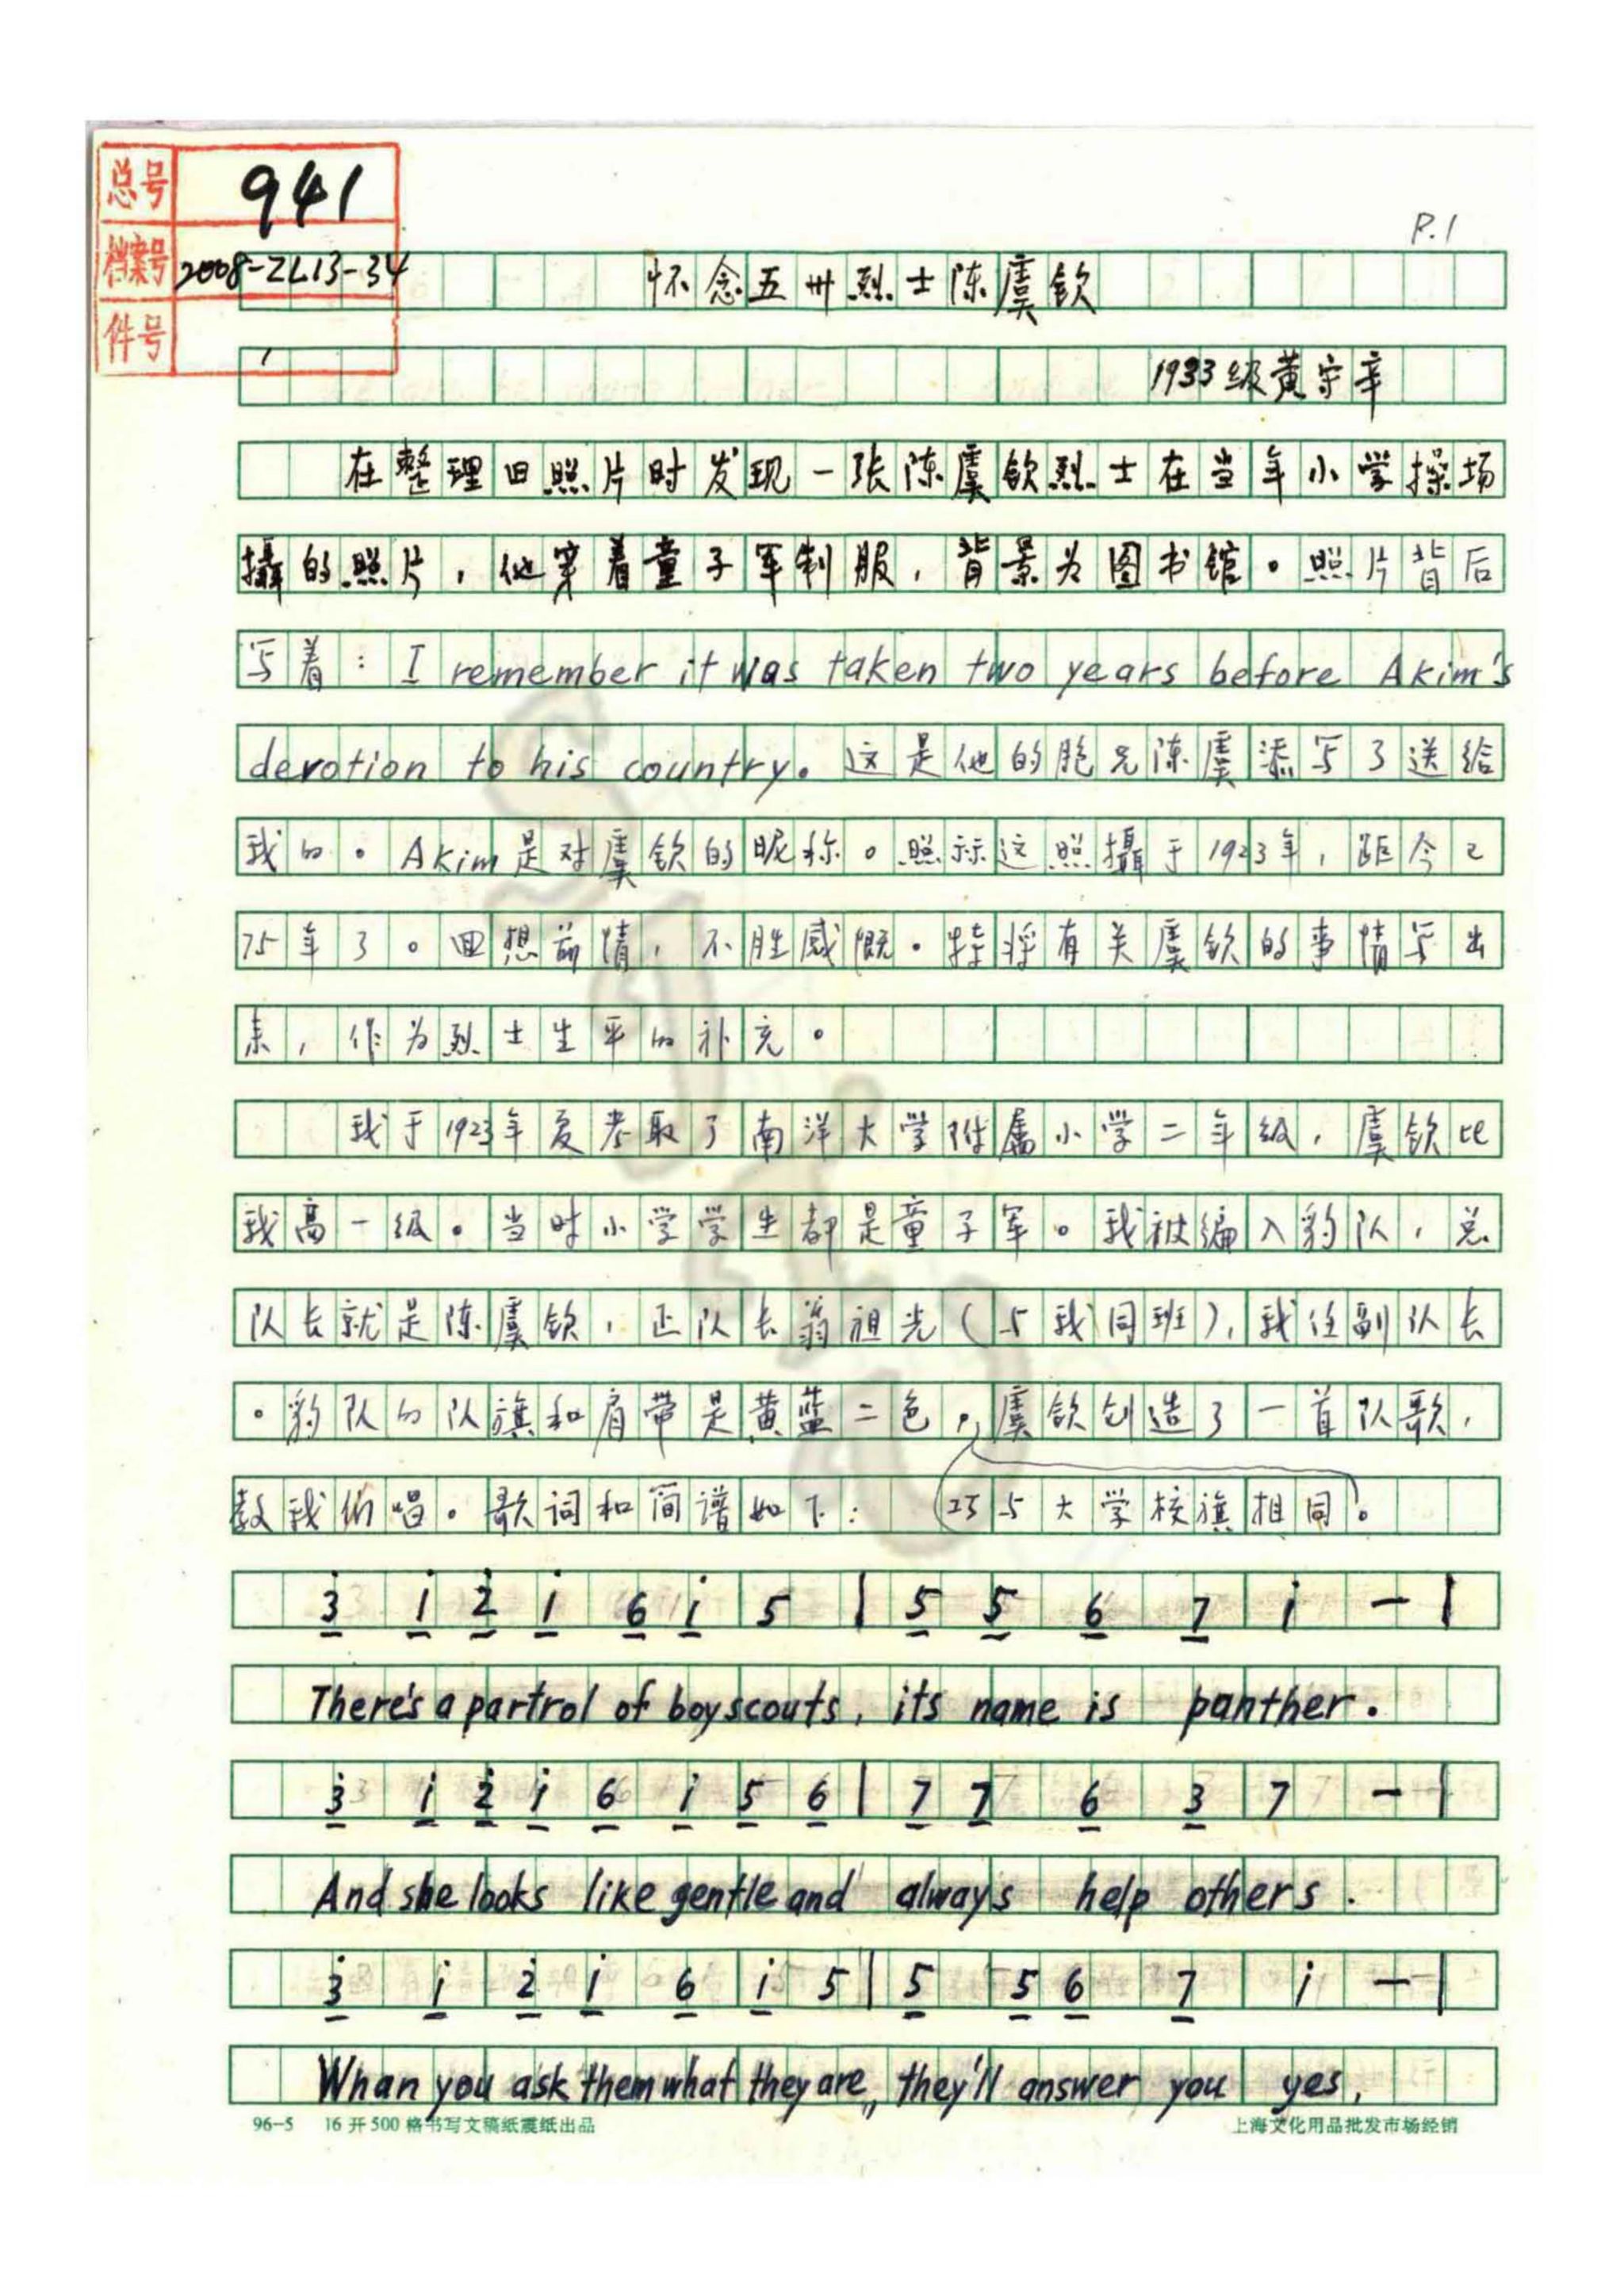 总号 941
P.1
档案号 2008-ZL13-34
怀念五卅烈士陈虞钦
件号 1
1933级黄宗辛
在整理旧照片时发现一张陈虞钦烈士在当年小学操场
摄的照片，他穿着童子军制服，背景为图书馆。照片背后
写着：I remember it was taken two years before Akim's
devotion to his country。这是他的胞兄陈虞添写了送给
我的。Akim是对虞钦的昵称。照示这照摄于1923年，距今已
75年了。回想前情，不胜感慨。特将有关虞钦的事情写出
来，作为烈士生平的补充。
我于1923年夏考取了南洋大学附属小学二年级，虞钦比
我高一级。当时小学学生都是童子军。我被编入豹队，总
队长就是陈虞钦，正队长翁祖光（与我同班），我任副队长
。豹队的队旗和肩带是黄蓝二色，虞钦创造了一首队歌，
教我们唱。歌词和简谱如下： 巧与大学校旗相同。
3̇ 1̇ 2̇ 1̇ 6 1̇ 5 | 5 5 6 7 1̇ — |
There's a partrol of boy scouts, its name is panther.
3̇ 1̇ 2̇ 1̇ 6 1̇ 5 6 | 7 7 6 3 7 — |
And she looks like gentle and always help others.
3̇ 1̇ 2̇ 1̇ 6 1̇ 5 | 5 5 6 7 1̇ — |
Whan you ask them what they are, they'll answer you yes,
96-5 16开500格书写文稿纸震纸出品
上海文化用品批发市场经销